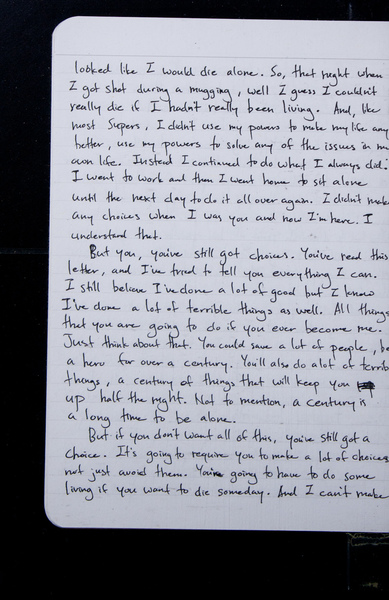 looked like I would die alone. So, that night when
I got shot during a mugging, well I guess I couldn't
really die if I hadn't really been living. And, like
most Supers, I didn't use my powers to make my life any
better, use my powers to solve any of the issues in my
own life. Instead I continued to do what I always did.
I went to work and then I went home to sit alone
until the next day to do it all over again. I didn't make
any choices when I was you and now I'm here. I
understand that.
But you, you've still got choices. You've read this
letter, and I've tried to tell you everything I can.
I still believe I've done a lot of good but I know
I've done a lot of terrible things as well. All things
that you are going to do if you ever become me.
Just think about that. You could save a lot of people, be
a hero for over a century. You'll also do alot of terrib
things, a century of things that will keep you
up half the night. Not to mention, a century is
a long time to be alone.
But if you don't want all of this, you've still got a
choice. It's going to require you to make a lot of choices
not just avoid them. You're going to have to do some
living if you want to die someday. And I can't make